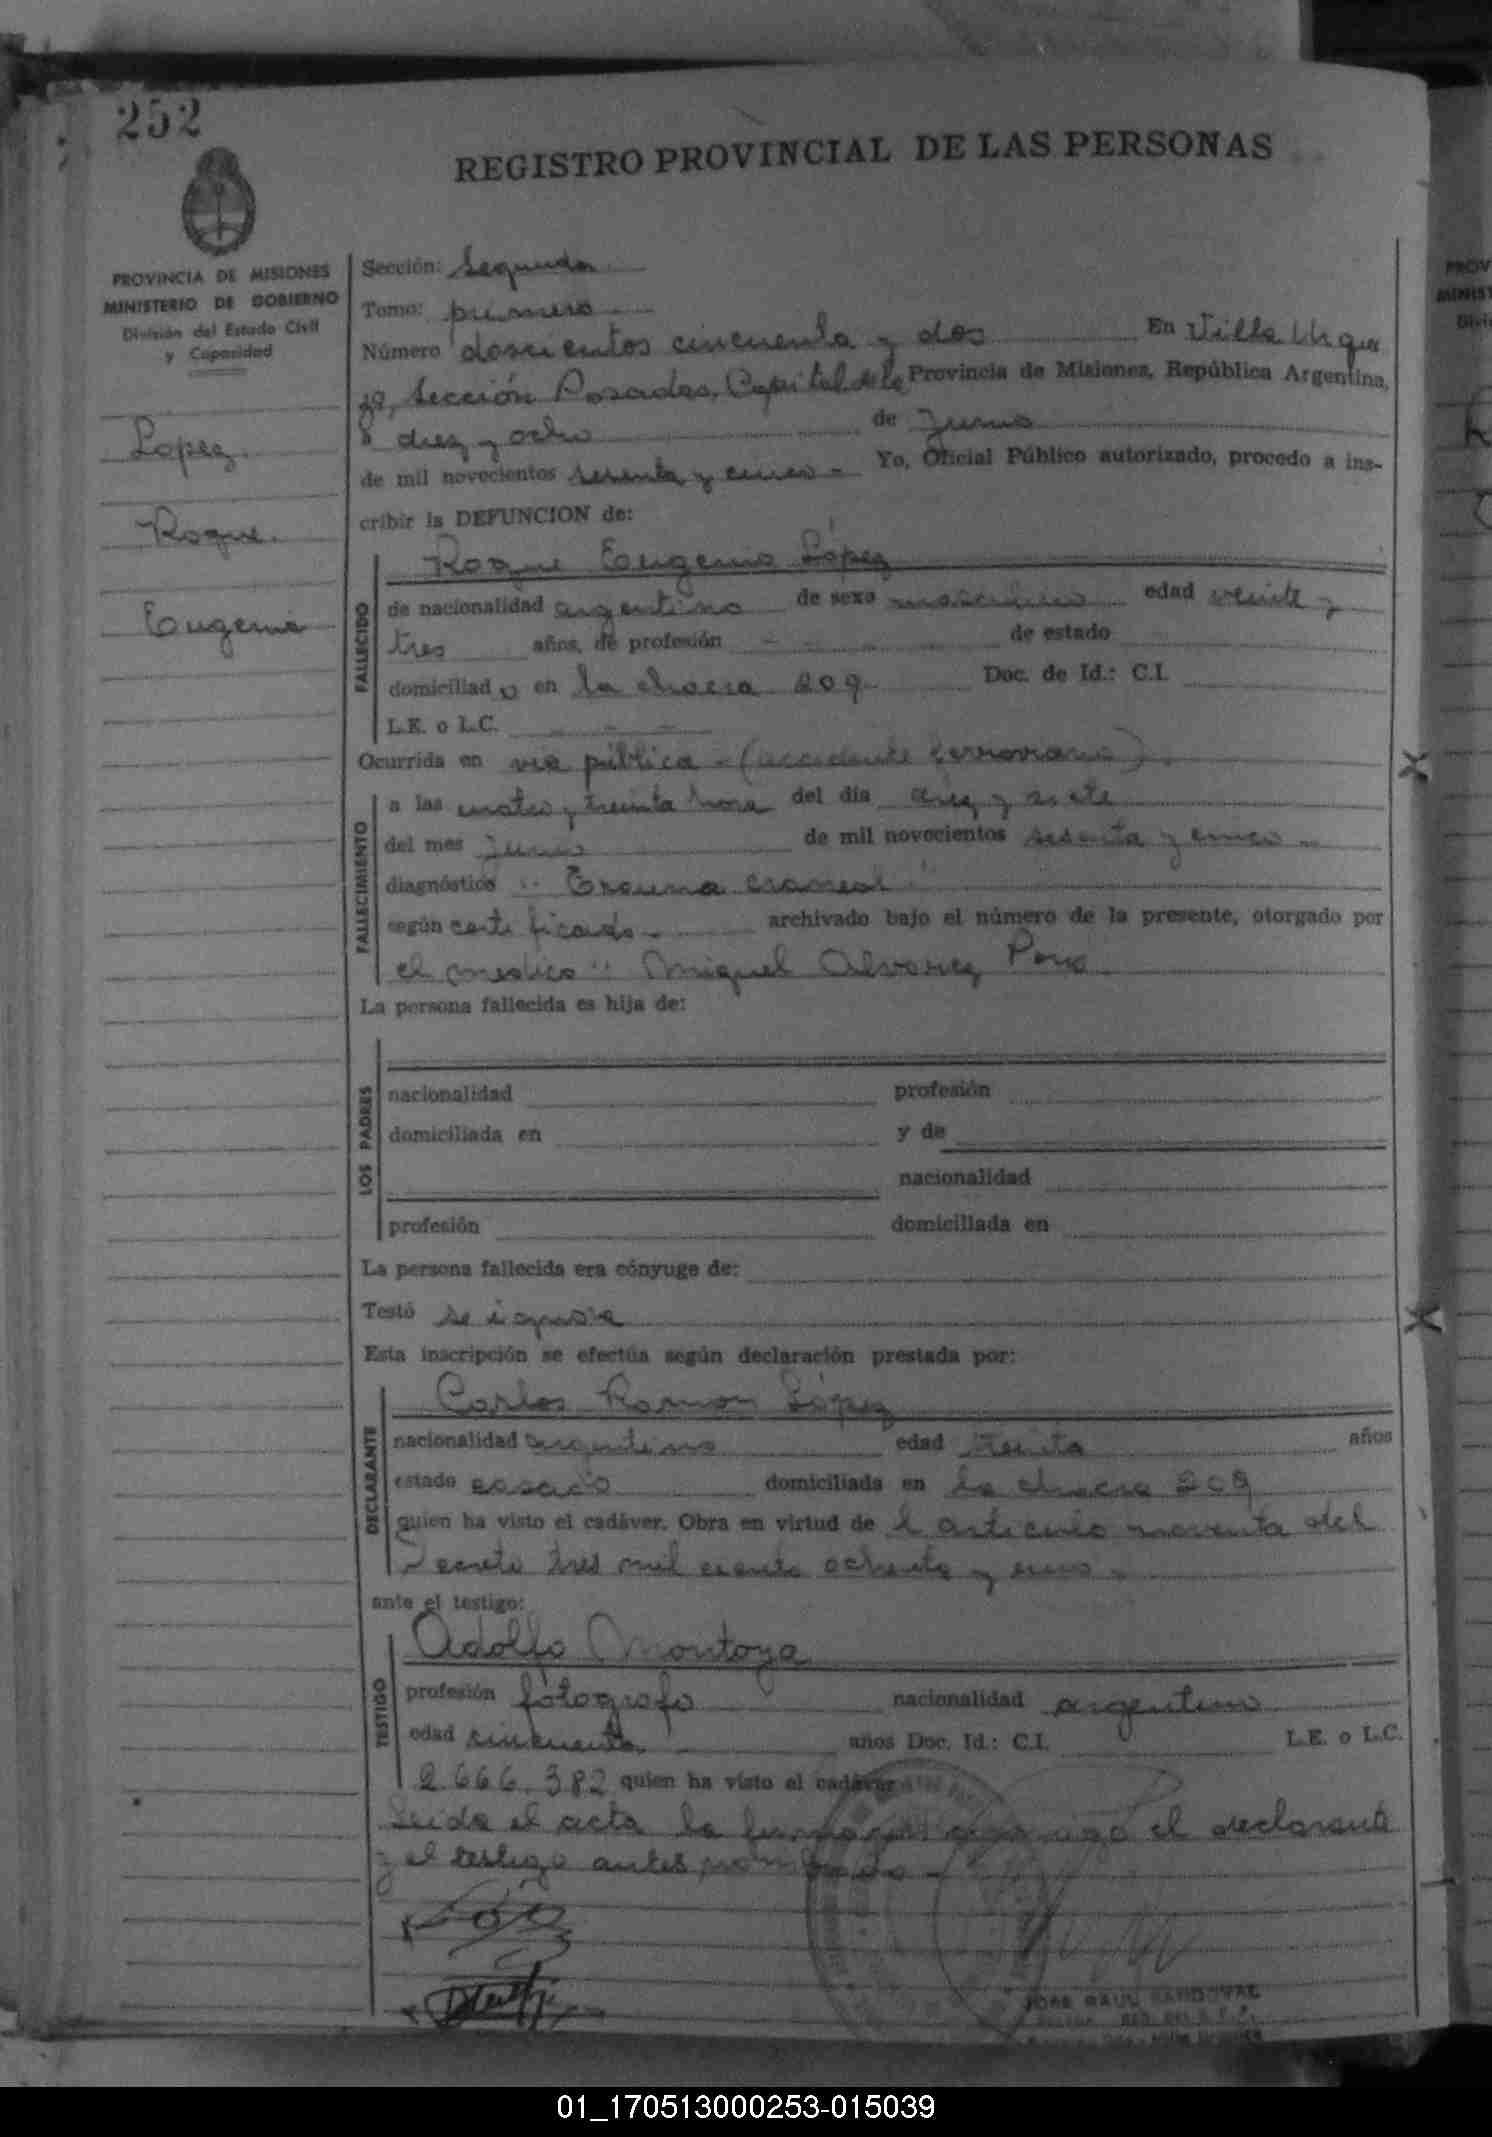 252
REGISTRO PROVINCIAL DE LAS PERSONAS
PROVINCIA DE MISIONES
MINISTERIO DE GOBIERNO
División del Estado Civil
y Capacidad
Lopez.
Roque.
Eugenio
Sección: Segunda
Tomo: primero
Número doscientos cincuenta y dos En Villa Urqui
za, Sección Posadas, Capital de la Provincia de Misiones, República Argentina,
a diez y ocho de Junio
de mil novecientos sesenta y cinco - Yo, Oficial Público autorizado, procedo a ins-
cribir la DEFUNCION de:
FALLECIDO
Roque Eugenio López
de nacionalidad argentino de sexo masculino edad veinte y
tres años, de profesión - - de estado
domiciliado en la chacra 209 Doc. de Id.: C.I.
L.E. o L.C. - - -
Ocurrida en via pública - (accidente ferroviario).
FALLECIMIENTO
a las cuatro y treinta hora del día diez y siete
del mes Junio de mil novecientos sesenta y cinco -
diagnóstico :- Trauma craneal
según certificado - archivado bajo el número de la presente, otorgado por
el medico :: Miguel Alvarez
La persona fallecida es hija de:
LOS PADRES
nacionalidad profesión
domiciliada en y de
nacionalidad
profesión domiciliada en
La persona fallecida era cónyuge de:
Testó se ignora
Esta inscripción se efectúa según declaración prestada por:
DECLARANTE
Carlos Ramon López
nacionalidad argentino edad treinta años
estado casado domiciliada en la chacra 209
quien ha visto el cadáver. Obra en virtud de l articulo noventa del
Decreto tres mil ciento ochenta y uno -
ante el testigo:
TESTIGO
Adolfo Montoya
profesión fotografo nacionalidad argentino
edad cincuenta años Doc. Id.: C.I. L.E. o L.C.
2.666.382 quien ha visto el cadáver
Leida el acta la firma conmigo el declarante
y el testigo antes nombrado -
JOSE RAUL SANDOVAL
01_170513000253-015039